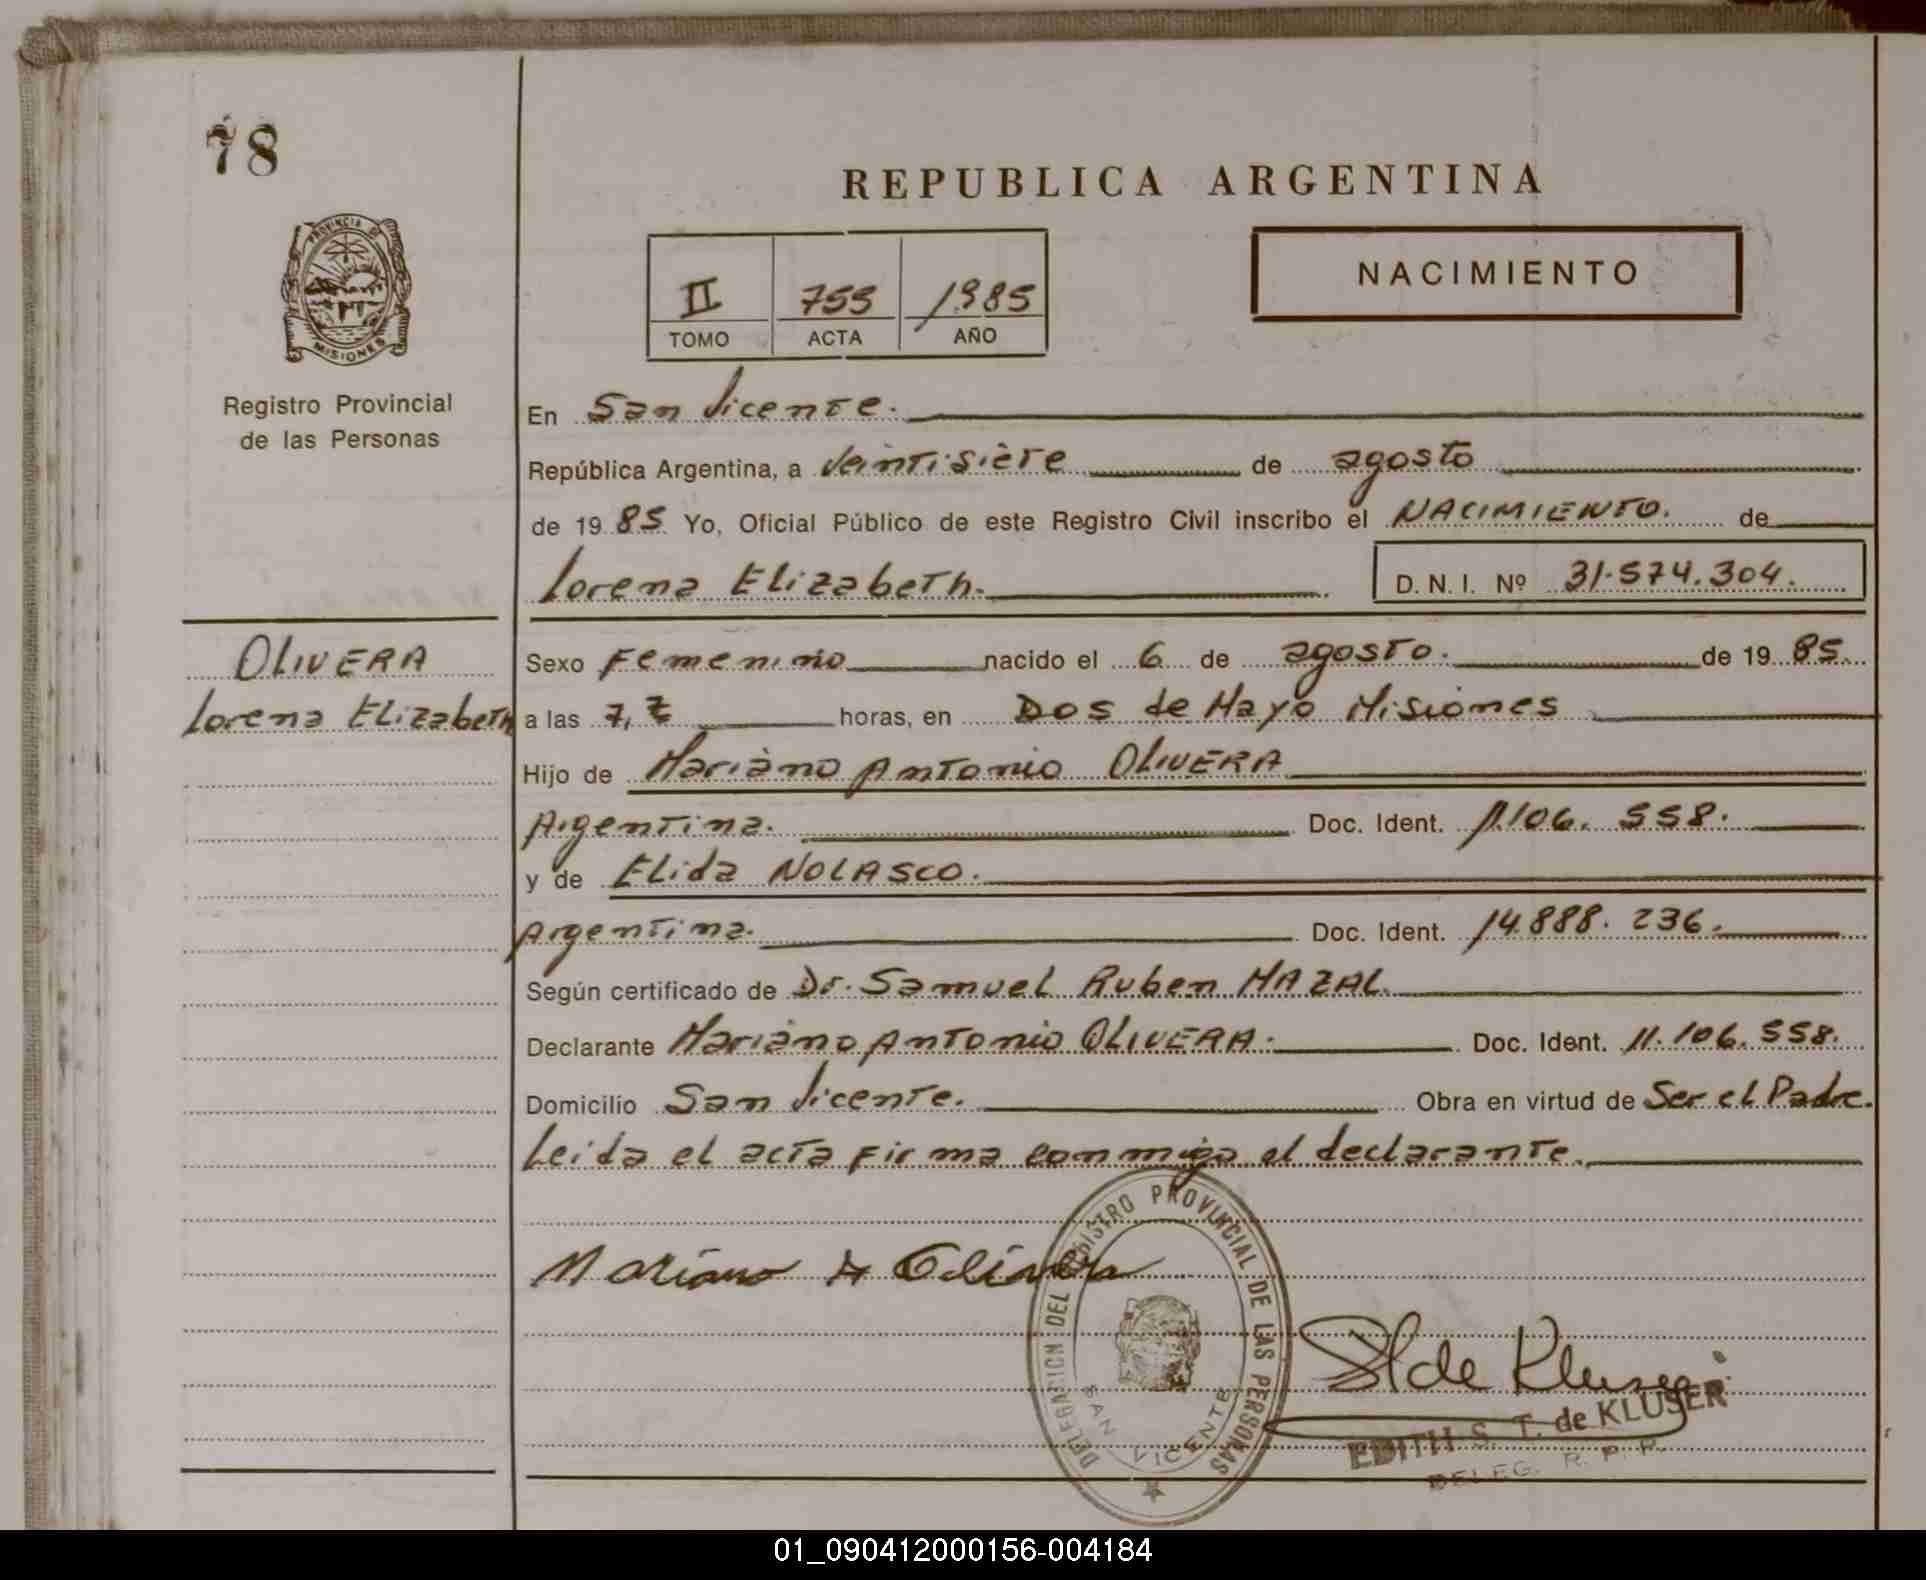 78
REPUBLICA ARGENTINA
PROVINCIA DE
MISIONES
Registro Provincial
de las Personas
II 755 1985
TOMO ACTA AÑO
NACIMIENTO
En San Vicente.
República Argentina, a veintisiete de agosto
de 19 85 Yo, Oficial Público de este Registro Civil inscribo el NACIMIENTO. de
Lorena Elizabeth. D. N. I. Nº 31.574.304.
OLIVERA
Lorena Elizabeth
Sexo Femenino nacido el 6 de agosto. de 19 85
a las horas, en Dos de Mayo Misiones
Hijo de Mariano Antonio OLIVERA
Argentina. Doc. Ident. 11.106.558.
y de Elida NOLASCO.
Argentina. Doc. Ident. 14.888.236.
Según certificado de Dr. Samuel Ruben MAZAL.
Declarante Mariano Antonio OLIVERA. Doc. Ident. 11.106.558.
Domicilio San Vicente. Obra en virtud de Ser el Padre.
Leida el acta firma conmigo el declarante.
Mariano A Olivera
DELEGACION DEL REGISTRO PROVINCIAL DE LAS PERSONAS
SAN VICENTE
ST de Kluser
EDITH S. T. de KLUSER
DELEG. R. P. P.
01_090412000156-004184